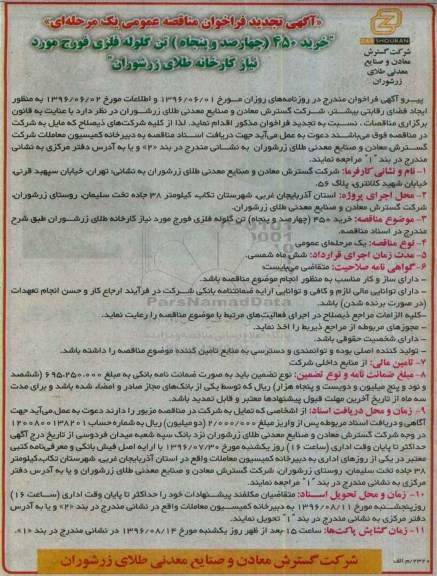 «آگهی تجدید فراخوان مناقصه عمومی یک مرحله‌ای»
"خرید ۴۵۰ (چهارصد و پنجاه) تن گلوله فلزی فورج مورد
نیاز کارخانه طلای زرشوران"
ZARSHOURAN
شرکت گسترش
معادن و صنایع
معدنی طلای
زرشوران
پیرو آگهی فراخوان مندرج در روزنامه‌های روزان مورخ ۱۳۹۶/۰۶/۰۱ و اطلاعات مورخ ۱۳۹۶/۰۶/۰۲ به منظور
ایجاد فضای رقابتی بیشتر، شرکت گسترش معادن و صنایع معدنی طلای زرشوران در نظر دارد با عنایت به قانون
برگزاری مناقصات، نسبت به تجدید فراخوان مذکور اقدام نماید. لذا از کلیه شرکت‌های ذیصلاح که مایل به شرکت
در مناقصه فوق می‌باشند دعوت به عمل می‌آید جهت دریافت اسناد مناقصه به دبیرخانه کمیسیون معاملات شرکت
گسترش معادن و صنایع معدنی طلای زرشوران به نشانی مندرج در بند ۲۰ و یا به آدرس دفتر مرکزی به نشانی
مندرج در بند "۱" مراجعه نمایند.
۱- نام و نشانی کارفرما: شرکت گسترش معادن و صنایع معدنی طلای زرشوران به نشانی: تهران، خیابان سپهبد قرنی،
خیابان شهید کلانتری، پلاک ۵۶.
۲- محل اجرای پروژه: استان آذربایجان غربی، شهرستان تکاب، کیلومتر ۳۸ جاده تخت سلیمان، روستای زرشوران،
شرکت گسترش معادن و صنایع معدنی طلای زرشوران.
۳- موضوع مناقصه: خرید ۴۵۰ (چهارصد و پنجاه) تن گلوله فلزی فورج مورد نیاز کارخانه طلای زرشوران طبق شرح
مندرج در اسناد مناقصه.
۴- نوع مناقصه: یک مرحله‌ای عمومی
۵- مدت زمان اجرای قرارداد: شش ماه شمسی.
۶- گواهی نامه صلاحیت: متقاضی می‌بایست:
- دارای ساز و کار مناسب به منظور انجام موضوع مناقصه باشد.
- دارای توانایی مالی لازم و کافی و توانایی ارایه ضمانتنامه بانکی شرکت در فرآیند ارجاع کار و حسن انجام تعهدات
(در صورت برنده شدن) باشد.
-کلیه الزامات مراجع ذیصلاح در اجرای فعالیت‌های مرتبط با موضوع مناقصه را رعایت نماید.
- مجوزهای مربوطه از مراجع ذیربط را اخذ نماید.
- دارای شخصیت حقوقی باشد.
- تولید کننده اصلی بوده و توانمندی و دسترسی به منابع تامین کننده موضوع مناقصه را داشته باشد.
۷- تامین مالی: از منابع داخلی شرکت
۸- مبلغ ضمانت نامه و نوع تضمین: نوع تضمین باید به صورت ضمانت نامه بانکی به مبلغ ۶۹۵،۲۵۰،۰۰۰ (ششصد
و نود و پنج میلیون و دویست و پنجاه هزار) ریال که توسط یکی از بانک‌های مجاز صادر و امضاء شده باشد و برای مدت
سه ماه از تاریخ آخرین مهلت قبول پیشنهادها معتبر و قابل تمدید باشد.
۹- زمان و محل دریافت اسناد: از اشخاصی که تمایل به شرکت در مناقصه مزبور را دارند دعوت به عمل می‌آید جهت
آگاهی و دریافت اسناد مربوطه پس از واریز مبلغ ۲/۰۰۰/۰۰۰ (دو میلیون) ریال به شماره حساب ۱۲۰۰۸۰۰۱۳۸۲۰۱
در وجه شرکت گسترش معادن و صنایع معدنی طلای زرشوران نزد بانک سپه شعبه میدان فردوسی از تاریخ درج آگهی
حداکثر تا پایان وقت اداری (ساعت ۱۶) روز یکشنبه مورخ ۱۳۹۶/۰۷/۳۰ با ارایه اصل فیش بانکی و معرفی‌نامه کتبی
معتبر در یکی از روزهای اداری به دبیرخانه کمیسیون معاملات واقع در استان آذربایجان غربی، شهرستان تکاب، کیلومتر
۳۸ جاده تخت سلیمان، روستای زرشوران، شرکت گسترش معادن و صنایع معدنی طلای زرشوران و یا به آدرس دفتر
مرکزی به نشانی مندرج در بند "۱" مراجعه نمایند.
۱۰- زمان و محل تحویل اسناد: متقاضیان مکلفند پیشنهادات خود را حداکثر تا پایان وقت اداری (ساعت ۱۶)
روز پنجشنبه مورخ ۱۳۹۶/۰۸/۱۱ به دبیرخانه کمیسیون معاملات واقع در نشانی مندرج در بند ۲۰ و یا به آدرس
دفتر مرکزی به نشانی مندرج در بند "۱" تحویل نمایند.
۱۱- زمان گشایش پاکت‌ها: ساعت ۱۵ بعد از ظهر روز یکشنبه مورخ ۱۳۹۶/۰۸/۱۴ در نشانی مندرج در بند «۱».
شرکت گسترش معادن و صنایع معدنی طلای زرشوران
۲۳۲۰/م الف
ParsNamadData